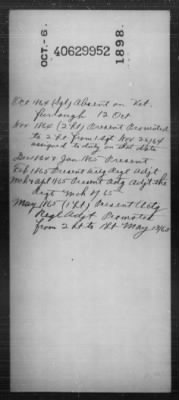 OCT.-6.
40629952
1898.
Oct 1864 (Sgt) Absent on Vet.
furlough 12 Oct
Nov 1864 (2 Lt) Present Promoted
to 2 Lt from 1 Sgt Nov 26/64
assigned to duty on that date
Dec 1864 & Jan 1865 Present
Feb 1865 Present Actg Regt Adjt
Mch & Apl 1865 Present Actg Adjt
regt Mch 65
May 1865 (1 Lt) Present Actg
Regl Adjt Promoted
from 2 Lt to 1 Lt May